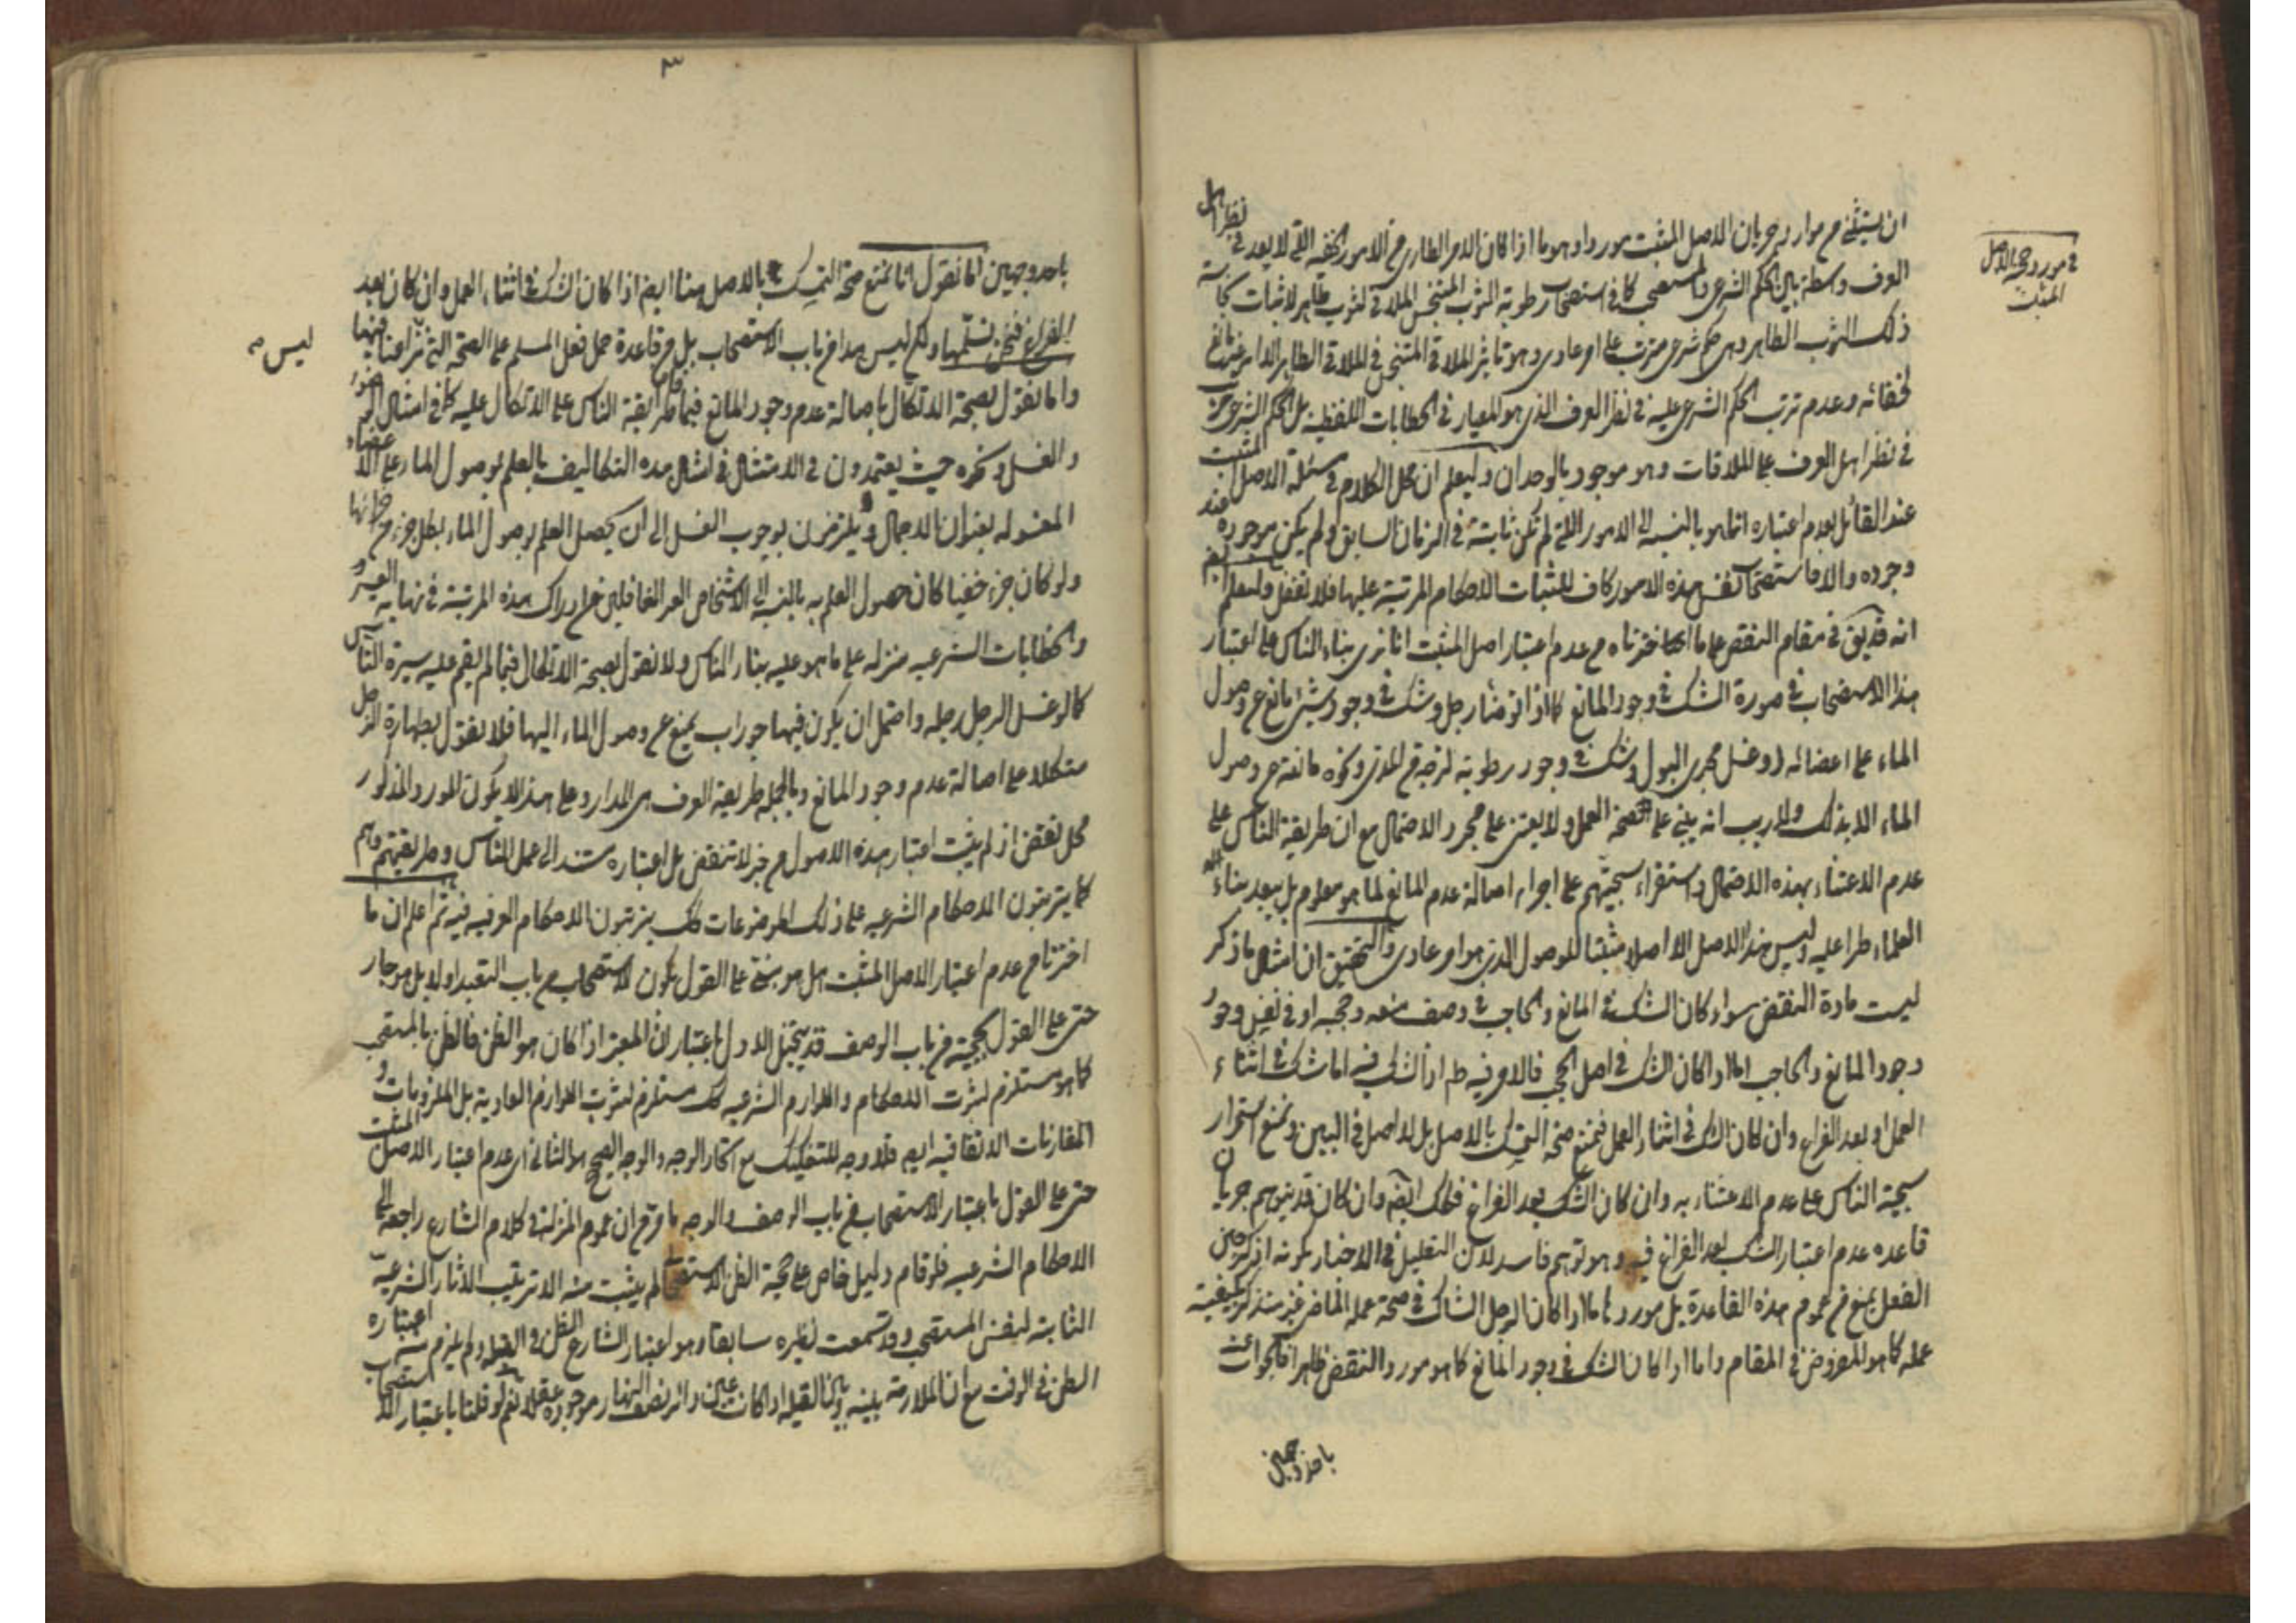 في مورد حجية الاصل
المثبت
ان يستثنى من موارد جريان الاصل المثبت موردا وهو ما اذا كان الامر الطارى من الامور الخفية التى لا يعد في نظر اهل
العرف واسطة بين الحكم الشرعى والمستصحب كما في استصحاب رطوبة الثوب المتنجس الملاقى لثوب طاهر لاثبات نجاسة
ذلك الثوب الطاهر وهى حكم شرعى مترتب على امر عادى وهو تاثير الملاقى المتنجس في الملاقى الطاهر الا انه غير مانع
لخفائه وعدم ترتب الحكم الشرعى عليه في نظر العرف الذى هو المعيار في الخطابات اللفظية بل الحكم الشرعى مترتب
في نظر اهل العرف على الملاقات وهو موجود بالوجدان وليعلم ان محل الكلام في مسئلة الاصل المثبت
عند القائل بعدم اعتباره انما هو بالنسبة الى الامور التى لم تكن ثابتة في الزمان السابق ولم يكن موجودة عند
وجوده والا فاستصحاب نفس هذه الامور كاف لاثبات الاحكام المرتبة عليها فلا تغفل وليعلم ايضا
انه قد يق في مقام النقض على ما اخترناه من عدم اعتبار اصل المثبت انا نرى بناء الناس على اعتبار
هذا الاستصحاب في صورة الشك في وجود المانع كما اذا توضأ رجل وشك في وجود شئ مانع عن وصول
الماء على اعضائه او غسل مجرى البول وشك في وجود رطوبة لزجة من المذى ونحوه مانعة عن وصول
الماء الا بذلك ولا ريب انه يبنى على صحة العمل ولا يعتنى على مجرد الاحتمال مع ان طريقة الناس على
عدم الاعتناء بهذه الاحتمال واستقراء سجيتهم على اجراء اصالة عدم المانع لما هو معلوم بل يبعد بناء
العلماء طرا عليه وليس هذا الاصل الا اصلا مثبتا للوصول الذى هو امر عادى والتحقيق ان امثال ما ذكر
ليست مادة النقض سواء كان الشك في المانع والحاجب في وصف منعه وحجبه او في نفس وجود
وجود المانع والحاجب اما اذا كان الشك في اصل الحجب فالامر فيه ظ اذ الشك فيه اما شك في اثناء
العمل او بعد الفراغ وان كان الشك في اثناء العمل فنمنع صحة التمسك بالاصل بل لا اصل في البين ونمنع استمرار
سجية الناس على عدم الاعتناء به وان كان الشك بعد الفراغ فكك ايضا وان كان قد يتوهم جريان
قاعدة عدم اعتبار الشك بعد الفراغ فيه وهو توهم فاسد لان التعليل في الاخبار بكونه اذكر حين
الفعل يمنع من عموم هذه القاعدة بل موردها ما اذا كان الرجل الشاك في صحة عمله الماضى غير متذكر بكيفية
عمله كما هو المفروض في المقام واما اذا كان الشك في وجود المانع كما هو مورد النقض ظاهرا فالجواب عنه
باحد وجهين
٣
باحد وجهين اما نقول انا نمنع صحة التمسك بالاصل هنا ايضا اذا كان الشك في اثناء العمل وان كان بعد
الفراغ فنحن نسلمها ولكن ليس هذا من باب الاستصحاب بل من قاعدة حمل فعل المسلم على الصحة التى نزاعنا فيها
ليس
واما نقول بصحة الاتكال باصالة عدم وجود المانع فيما قام طريقة الناس على الاتكال عليه كما في امثال الوضوء
والغسل ونحوه حيث يعتمدون في الامتثال في امثال هذه التكاليف بالعلم بوصول الماء على الاعضاء
المغسوله بعنوان الاجمال ولا يلتزمون بوجوب الغسل الى ان يحصل العلم بوصول الماء بكل جزء من
ولو كان جزء خفيا كان حصول العلم به بالنسبة الى الاشخاص الغير الغافلين عن ادراك هذه المرتبة في نهاية العسر و
والخطابات الشرعيه منزله على ما هو عليه بناء الناس ولا نقول بصحة الاتكال فيما لم يقم عليه سيرة الناس
كما لو غسل الرجل رجله واحتمل ان يكون فيها جوراب يمنع عن وصول الماء اليها فلا نقول بطهارة الرجل
متكلا على اصالة عدم وجود المانع وبالجملة طريقة العرف هى المدار وعلى هذا لا يكون المورد المذكور
محل نقض اذ لم يثبت اعتبار هذه الاصول من خبر لا تنقض بل اعتباره مستند الى عمل الناس وطريقتهم وهم
كما يترتبون الاحكام الشرعيه على ذلك الموضوعات كك يترتبون الاحكام العرفيه فيه ثم اعلم ان ما
اخترنا من عدم اعتبار الاصل المثبت هل هو مبنى على القول بكون الاستصحاب من باب التعبد او لا بل هو جار
حتى على القول بحجيته من باب الوصف قد يتخيل الاول باعتبار ان المعتبر اذا كان هو الظن فالظن بالمستصحب
كما هو مستلزم لترتب الاحكام واللوازم الشرعيه كك مستلزم لترتب اللوازم العادية بل الملزومات و
المقارنات الاتفاقيه ايضا فلا وجه للتفكيك مع اتحاد الوجه والوجه الصحيح هو الثانى اى عدم اعتبار الاصل المثبت
حتى على القول باعتبار الاستصحاب من باب الوصف والوجه ما مر من ان عموم المنزلة في كلام الشارع راجعة الى
الاحكام الشرعيه فلو قام دليل خاص على حجية الظن الاستصحابى لم يثبت منه الا ترتيب الاثار الشرعية
الثابتة لنفس المستصحب وقد سمعت نظيره سابقا وهو اعتبار الشارع الظن في القبلة ولم يلزم منه اعتباره
الظن في الوقت مع ان الملازمة بينه وبين القبلة اذا كانت عين دائرة نصف النهار موجودة عقلا نعم لو قلنا باعتبار الاستصحاب